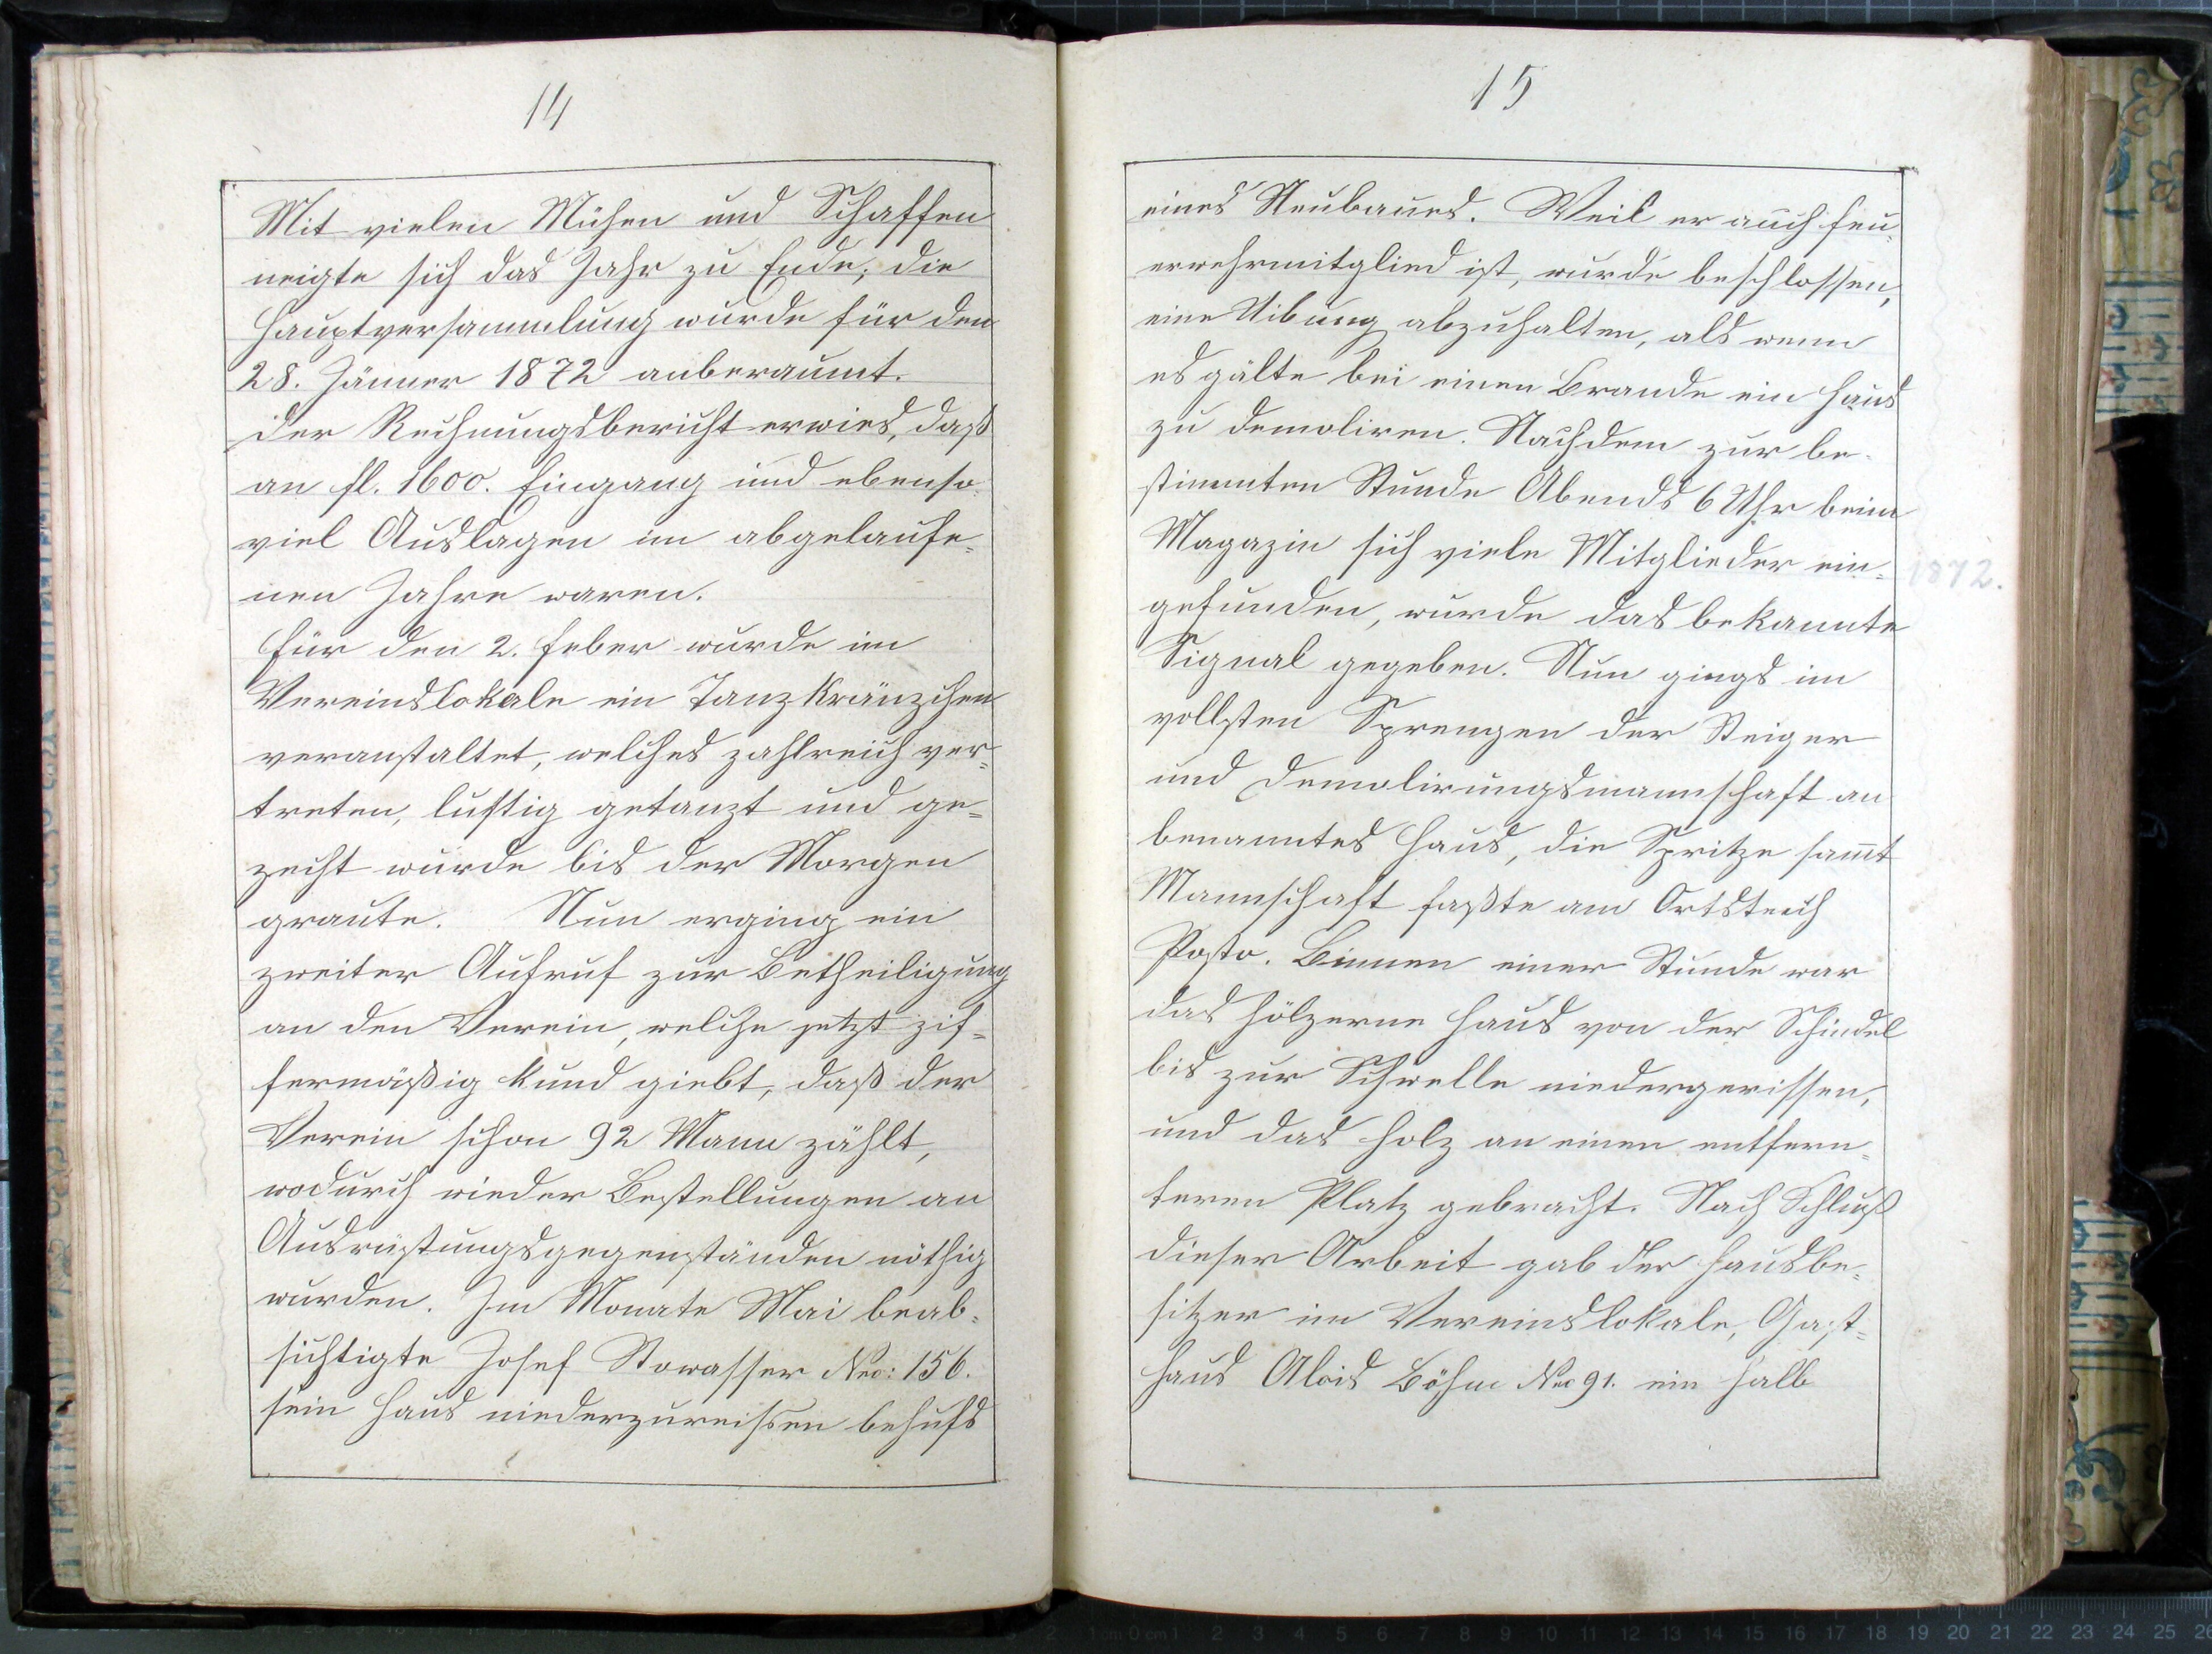 14
Mit vielen Mühen und Schaffen
neigte sich das Jahr zu Ende; die
Hauptversammlung wurde für den
28. Jänner 1872 anberaumt.
Der Rechnungsbericht erwies, daß
an fl. 1600. Eingang und ebenso¬
viel Auslagen im abgelaufe¬
nen Jahre waren.
Für den 2. Feber wurde im
Vereinslokale ein Tanzkränzchen
veranstaltet, welches zahlreich ver¬
treten, lustig getanzt und ge¬
zecht wurde bis der Morgen
graute. Nun erging ein
zweiter Aufruf zur Betheiligung
an den Verein, welche jetzt zif¬
fermäßig kund giebt, daß der
Verein schon 92 Mann zählt,
wodurch wieder Bestellungen an
Ausrüstungsgegenständen nöthig
wurden. Im Monate Mai beab¬
sichtigte Josef Stowasser Nro: 156.
sein Haus niederzureißen behufs
15
eines Neubaues. Weil er auch Feu¬
erwehrmitglied ist, wurde beschlossen,
eine Uibung abzuhalten, als wenn
es gälte bei einen Brande ein Haus
zu demoliren. Nachdem zur be¬
stimmten Stunde Abends 6 Uhr beim
Magazin sich viele Mitglieder ein¬
gefunden, wurde das bekannte
Signal gegeben. Nun gings im
vollsten Sprengen der Steiger
und Demolirungsmannschaft an
benanntes Haus, die Spritze samt
Mannschaft faßte am Ortsteich
Posto. Binnen einer Stunde war
das hölzerne Haus von der Schindel
bis zur Schwelle niedergerissen,
und das Holz an einen entfern¬
teren Platz gebracht. Nach Schluß
dieser Arbeit gab der Hausbe¬
sitzer im Vereinslokale, Gast¬
haus Alois Böhm Nro 91. ein halb
1872.